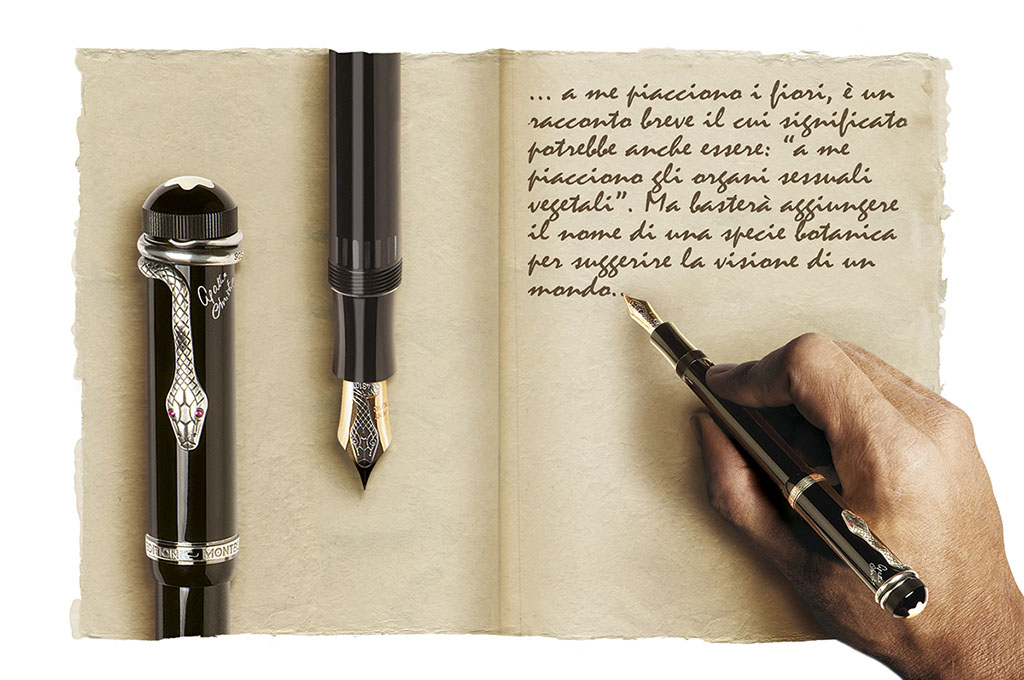 ... a me piacciono i fiori, è un
racconto breve il cui significato
potrebbe anche essere: “a me
piacciono gli organi sessuali
vegetali”. Ma basterà aggiungere
il nome di una specie botanica
per suggerire la visione di un
mondo..
Agatha
Christie